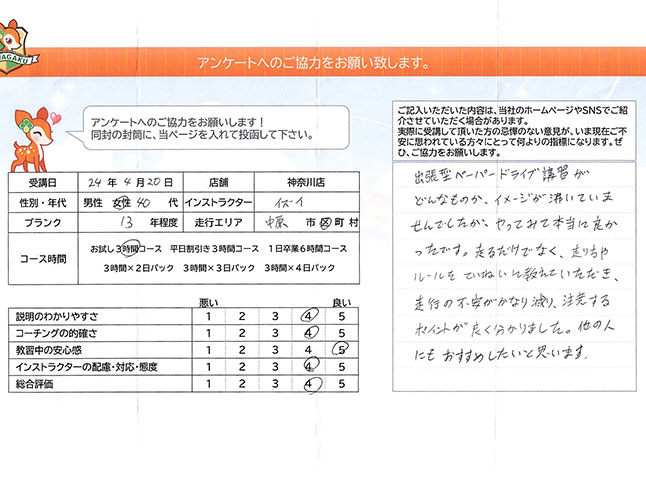 NAGAKU
アンケートへのご協力をお願い致します。
アンケートへのご協力をお願いします！
同封の封筒に、当ページを入れて投函して下さい。
ご記入いただいた内容は、当社のホームページやSNSでご紹
介させていただく場合があります。
実際に受講して頂いた方の忌憚のない意見が、いま現在ご不
安に思われている方々にとって何よりの指標になります。ぜ
ひ、ご協力をお願いします。
受講日 24 年 4 月 20 日 店舗 神奈川店
性別・年代 男性 女性 40 代 インストラクター
ブランク 13 年程度 走行エリア 中原 市 区 町 村
コース時間 お試し3時間コース 平日割引き3時間コース 1日卒業6時間コース
3時間×2日パック 3時間×3日パック 3時間×4日パック
悪い 良い
説明のわかりやすさ 1 2 3 4 5
コーチングの的確さ 1 2 3 4 5
教習中の安心感 1 2 3 4 5
インストラクターの配慮・対応・態度 1 2 3 4 5
総合評価 1 2 3 4 5
出張型ペーパードライブ講習が
どんなものか、イメージが沸いていま
せんでしたが、やってみて本当に良か
ったです。走るだけでなく、走りちや
ルールをていねいに教えていただき、
走行の不安がかなり減り、注意する
ポイントが良く分かりました。他の人
にもおすすめしたいと思います。